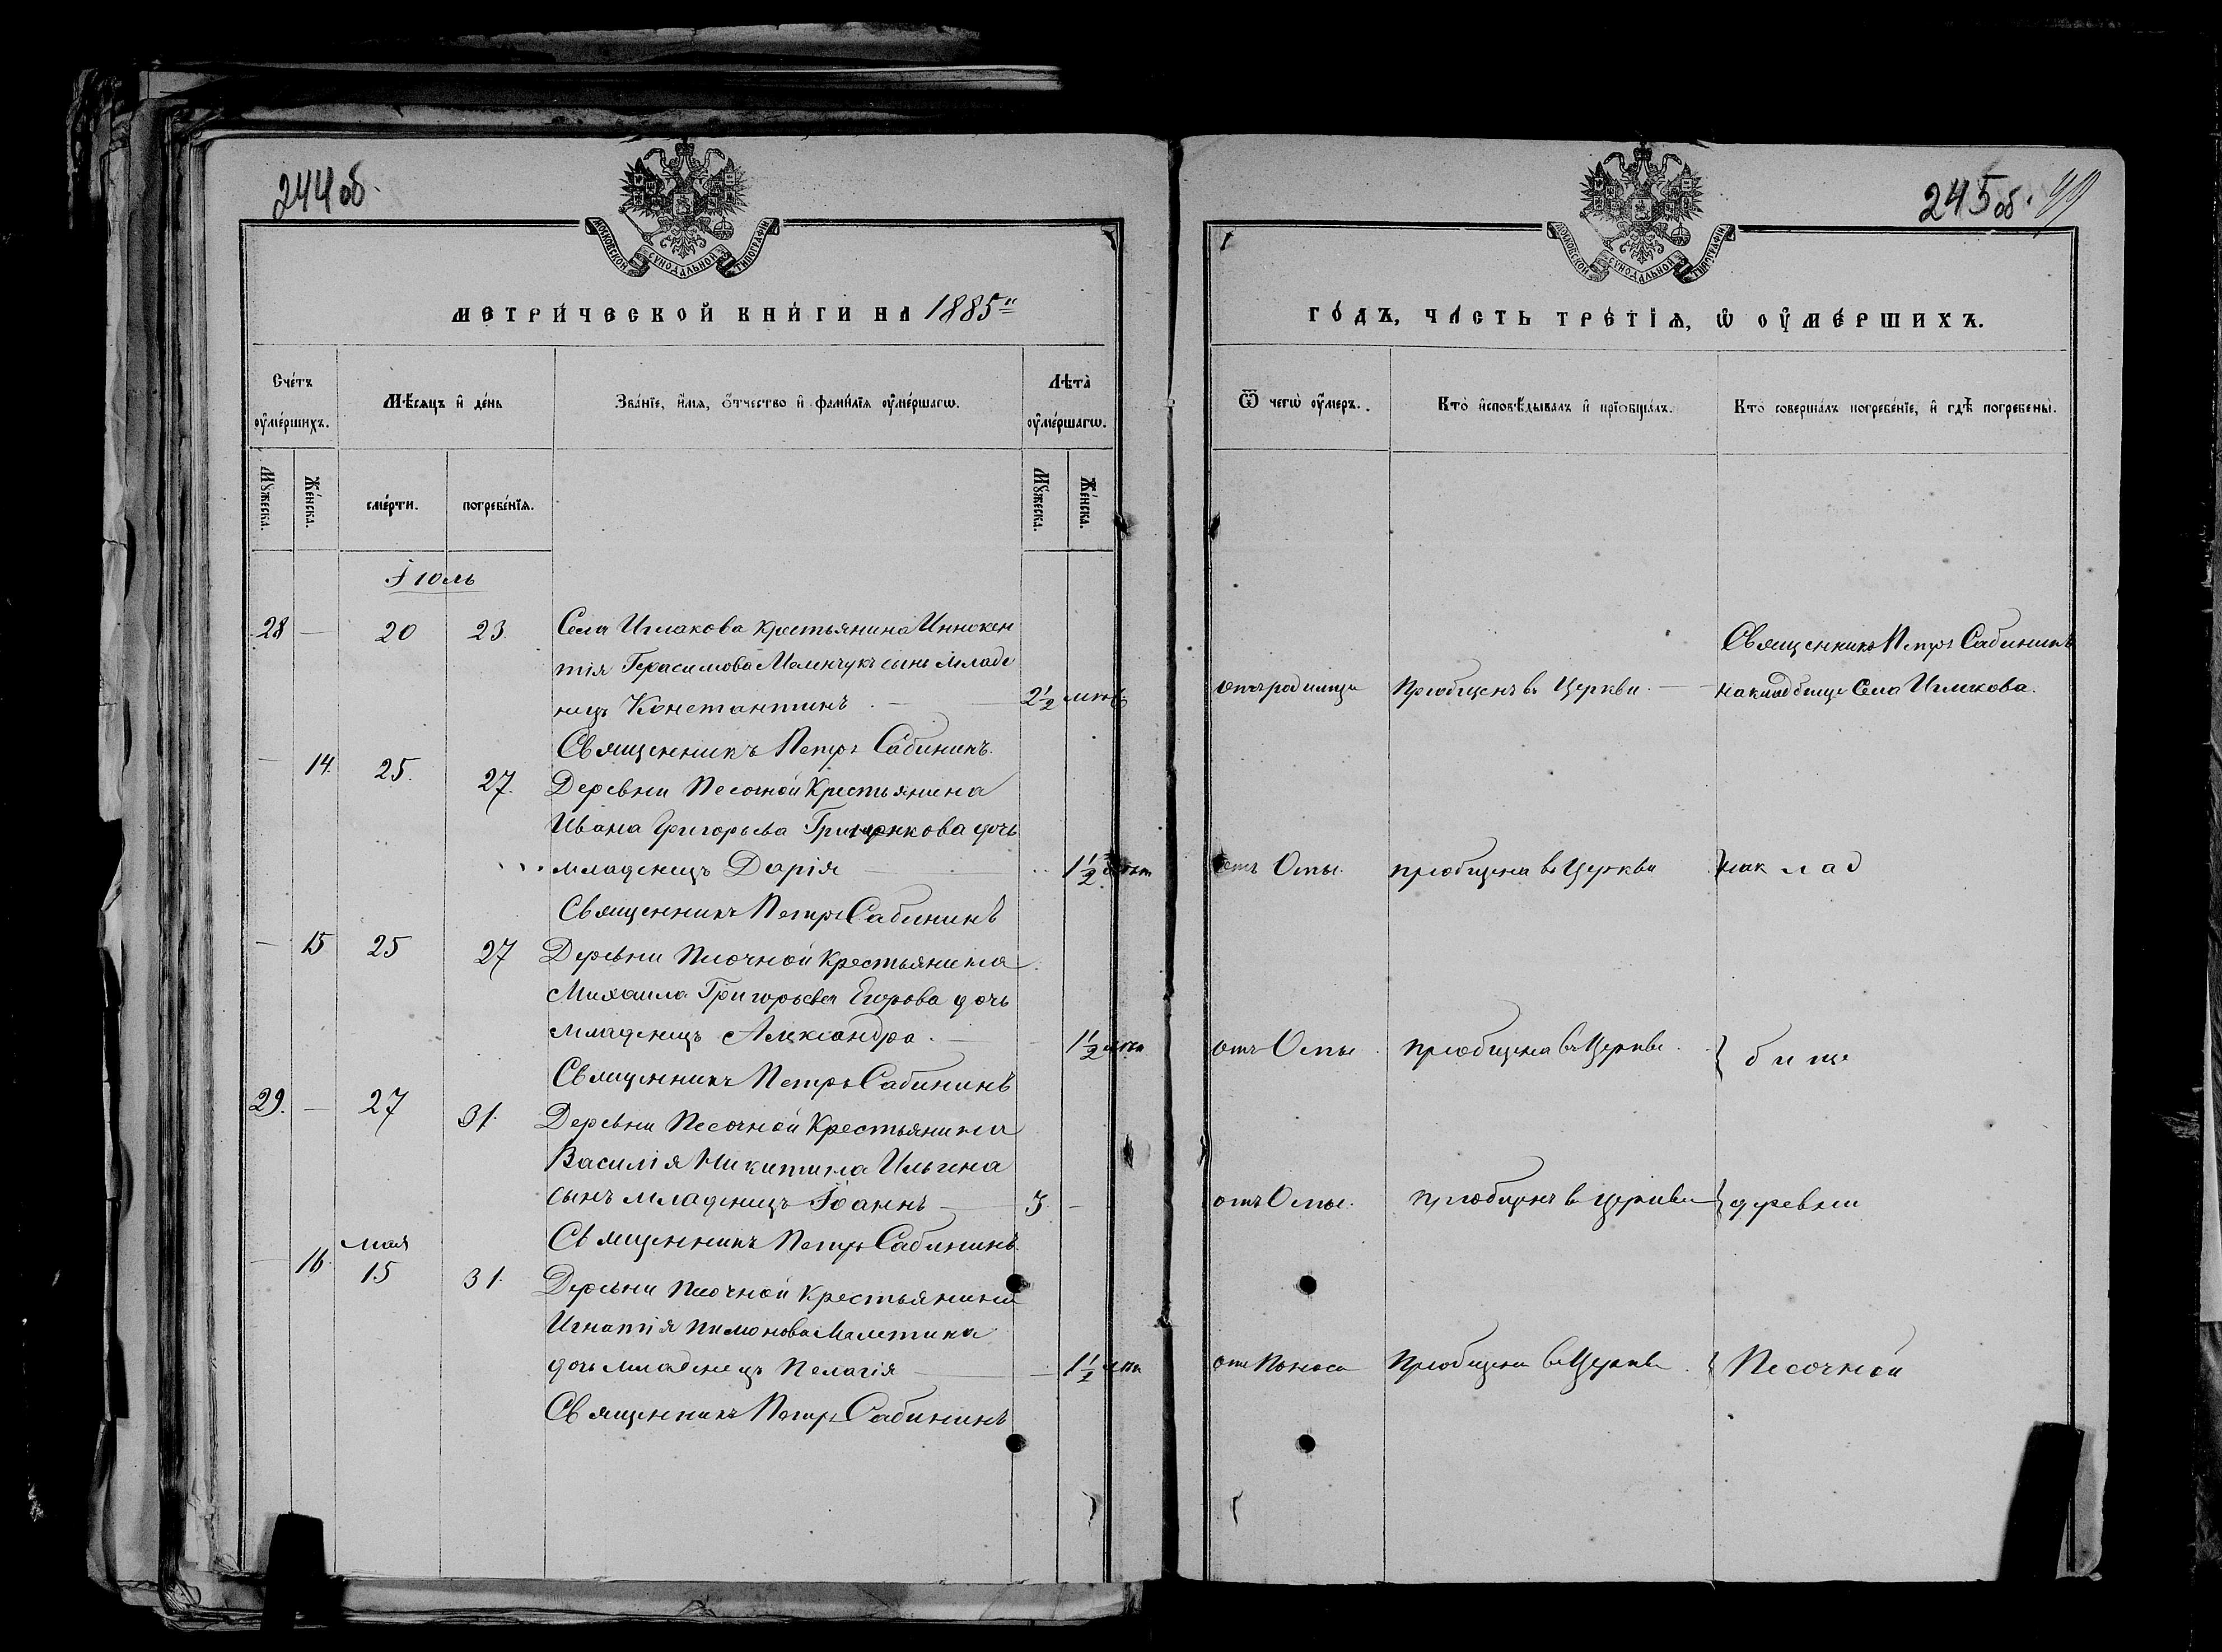 244 об.
МОСКОВСКОЙ СѴНОДАЛЬНОЙ ТИПОГРАФІИ
МЕТРИ́ЧЕСКОЙ КНИ́ГИ НА 1885й
Сче́тъ ᲂу҆ме́ршихъ.
Мѣ́сяцъ и҆ де́нь
Зва́нїе, и҆́мѧ, ѻ҆́тчество и҆ фами́лїѧ ᲂу҆ме́ршагѡ.
Лѣта̀ ᲂу҆ме́ршагѡ.
Мꙋ́жеска.
Же́нска.
сме́рти.
погребе́нїѧ.
Мꙋ́жеска.
Же́нска.
Іюль
28 — 20 23. Села Иглакова Крестьянина Иннокен
тія Герасимова Маленчукъ сынъ младе
нецъ Константинъ. — 2½ лѣтъ
Священникъ Петръ Сабининъ.
— 14. 25. 27. Деревни Песочной Крестьянина
Ивана Григорьева дочь
младенецъ Дарія — 1½ лѣтъ
Священникъ Петръ Сабининъ
— 15 25 27 Деревни Песочной Крестьянина
Михаила Григорьева Егорова дочь
младенецъ Александра. — 1½ лѣтъ
Священникъ Петръ Сабининъ
29. — 27 31. Деревни Песочной Крестьянина
Василія Никитина Ильина
сынъ младенецъ Іоаннъ — 3. —
Священникъ Петръ Сабининъ.
мая
— 16. 15 31. Деревни Песочной Крестьянина
Игнатія Пимонова Малетина
дочь младенецъ Пелагія — 1½ лѣтъ
Священникъ Петръ Сабининъ
245 об. 99
МОСКОВСКОЙ СѴНОДАЛЬНОЙ ТИПОГРАФІИ
ГО́ДЪ, ЧА́СТЬ ТРЕ́ТЇѦ, Ѡ҆ ОУ҆МЕ́РШИХЪ.
Ѿ чегѡ̀ ᲂу҆́меръ.
Кто̀ и҆сповѣ́дывалъ и҆ прїѡбща́лъ.
Кто̀ соверша́лъ погребе́нїе, и҆ гдѣ̀ погребены̀.
Священникъ Петръ Сабининъ
отъ родимца Пріобщенъ въ Церкви. — на кладбище Села Иглакова.
отъ Оспы. пріобщена въ Церкви } на клад
отъ Оспы. пріобщена въ Церкви. } бище
отъ Оспы. пріобщенъ въ Церкви } деревни
отъ Поноса Пріобщена въ Церкви. } Песочной